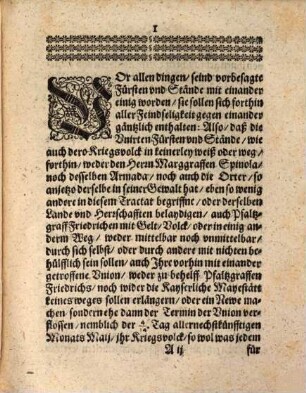 1
VOr allen dingen/ seind vorbesagte
Fürsten vnd Stände mit einander
einig worden/ sie sollen sich forthin
aller Feindseligkeit gegen einander
gäntzlich enthalten: Also/ daß die
Vnirten Fürsten vnd Stände/ wie
auch dero Kriegsvolck in keinerley weiß oder weg/
forthin/ weder den Herrn Marggraffen Spinola/
noch desselben Armada/ noch auch die Orter/ so
anjetzo derselbe in seiner Gewalt hat/ eben so wenig
andere in diesem Tractat begriffne/ oder derselben
Lande vnd Herrschafften belaydigen/ auch Pfaltz-
graff Friedrichen mit Gelt/ Volck/ oder in einig an-
derm Weg/ weder mittelbar noch vnmittelbar/
durch sich selbst/ oder durch andere mit nichten be-
hülfflich sein sollen/ auch Ihre vorhin mit einander
getroffene Vnion/ weder zu behelff Pfaltzgraffen
Friedrichs/ noch wider die Kayserliche Mayestätt
keines weges sollen erlängern/ oder ein Newe ma-
chen/ sondern ehe dann der Termin der Vnion ver-
flossen/ nemblich der Tag allernechstkünfftigen
Monats Maij/ jhr Kriegsvolck/ so wol was jedem
A ij für